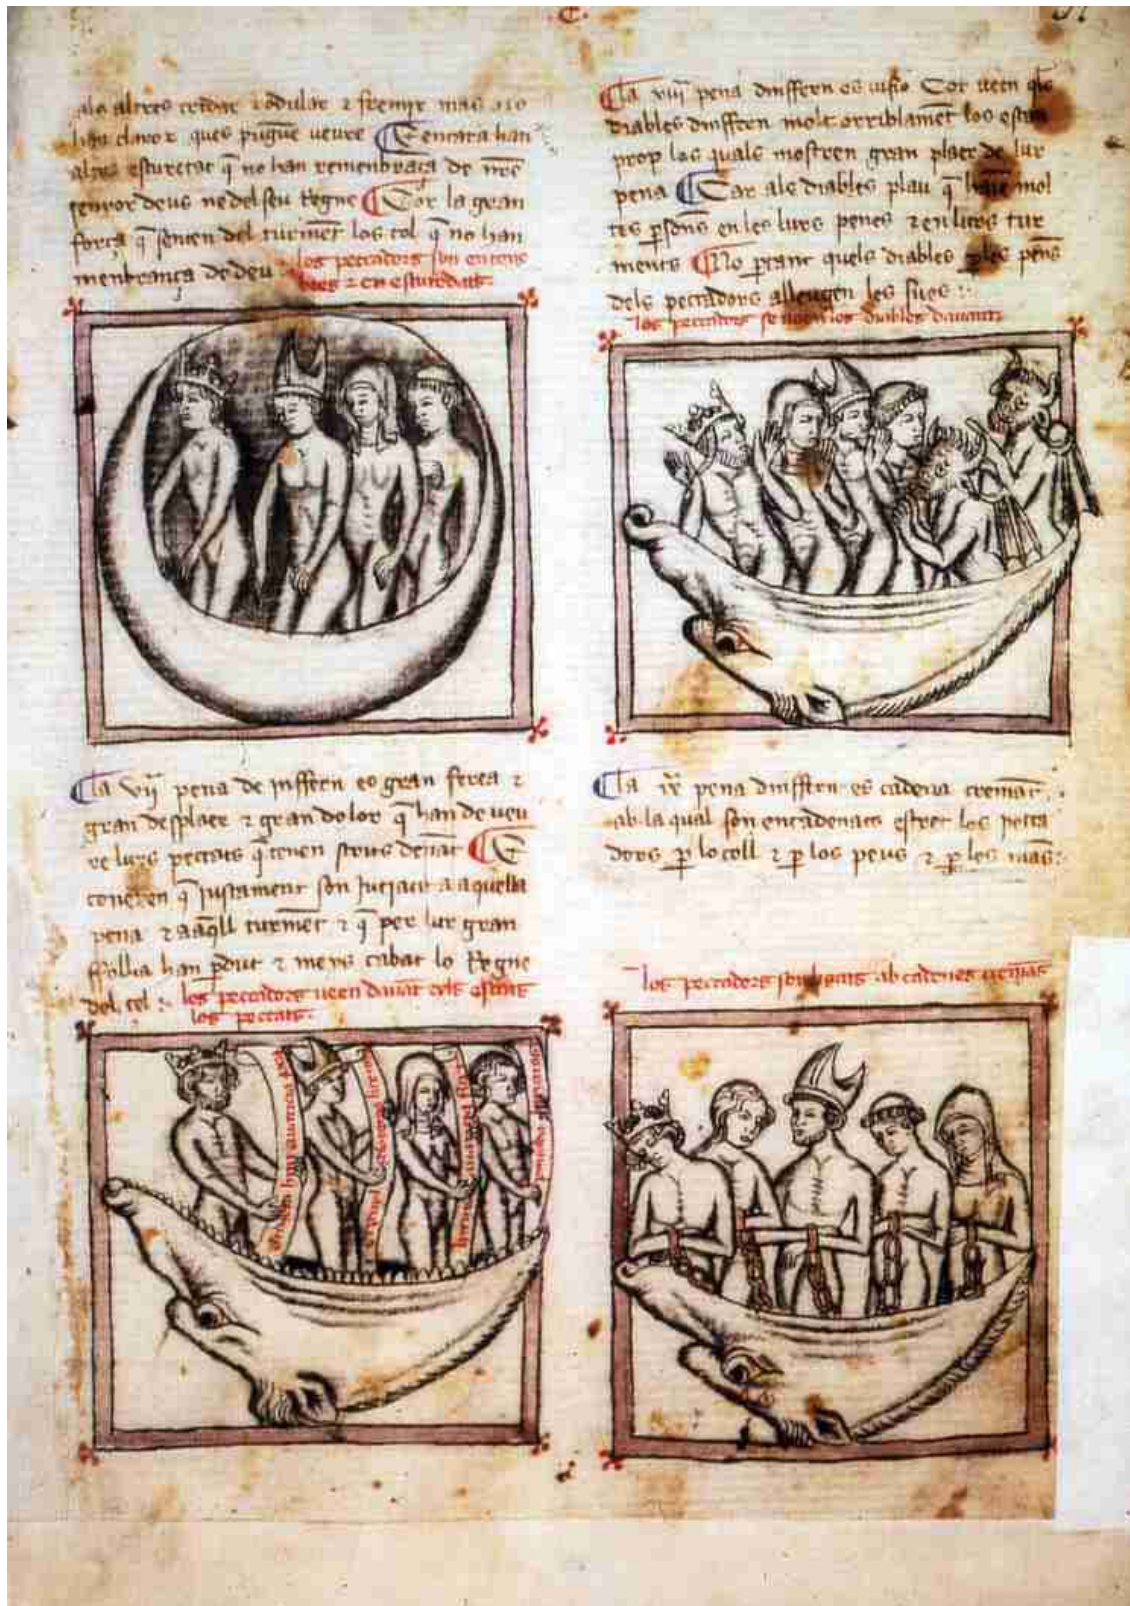 als altres cridar ⁊ odular ⁊ fremir mas no
han claror ques pugue veure E encara han
altra escuretat q̄ no han remenbraça de nr̄e
senyor deus ne del seu Regne Cor la gran
força q̄ senten del turmēt los tol q̄ no han
menbrança de deu
los peccadors son en tene
bres ⁊ en escuredat
La vij pena de inffern es gran ferea ⁊
gran desplaer ⁊ gran dolor q̄ han de veu
re lurs peccats q̄ tenen scrits deuāt E
conexen q̄ justament son jutjats a aquella
pena ⁊ a aq̄ll turmēt ⁊ q̄ per lur gran
ffollia han p̄dut ⁊ menys cabat lo Regne
del cel :
los peccadors veen dauāt cels escrits
los peccats.
La viij pena dinffern es visio Cor veen q̄ls
diables dinffern molt orriblamēt los estan
prop los quals mostren gran plaer de lur
pena Car als diables plau q̄ haie mol
tes p̄sōns en les lurs penes ⁊ en lurs tur
ments No p̄tant quels diables p̄ les pēns
dels peccadors alleugen les sues :
los peccadors se veen los diables dauant
La ix pena dinffern es cadena cremāt
ab la qual son encadenats estret los pecca
dors p̄ lo coll ⁊ p̄ los peus ⁊ p̄ les mās :
los peccadors son ligats ab cadenes